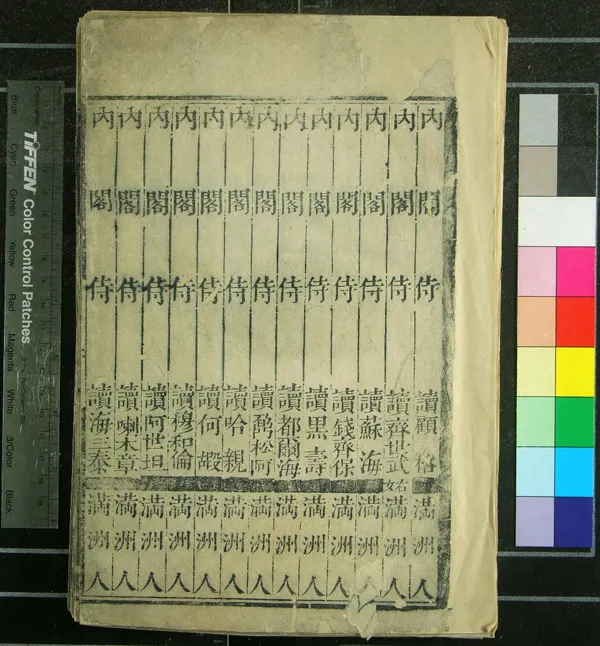 內閣侍讀顧格滿洲人
內閣侍讀齊世武滿洲人
內閣侍讀蘇海滿洲人
內閣侍讀錢齊保滿洲人
內閣侍讀黑壽滿洲人
內閣侍讀都爾海滿洲人
內閣侍讀鄂松阿滿洲人
內閣侍讀哈親滿洲人
內閣侍讀何嘏滿洲人
內閣侍讀穆和倫滿洲人
內閣侍讀阿世坦滿洲人
內閣侍讀喇木章滿洲人
內閣侍讀海三泰滿洲人
TIFFEN Color Control Patches
Blue
Cyan
Green
Yellow
Red
Magenta
White
3/Color
Black